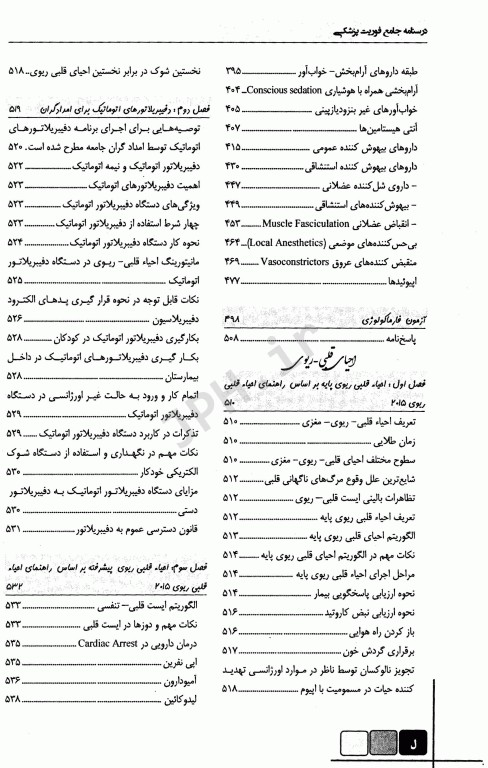 درسنامه جامع فوریت پزشکی
طبقه داروهای آرام‌بخش- خواب‌آور ........ ۳۹۵
آرام‌بخشی همراه با هوشیاری Conscious sedation.. ۴۰۴
خواب‌آورهای غیر بنزودیازپینی ........ ۴۰۵
آنتی هیستامین‌ها ........ ۴۰۷
داروهای بیهوش کننده عمومی ........ ۴۱۵
داروهای بیهوش کننده استنشاقی ........ ۴۳۰
- داروی شل‌کننده عضلانی ........ ۴۴۷
- بیهوش‌کننده‌های استنشاقی ........ ۴۴۹
- انقباض عضلانی Muscle Fasciculation ........ ۴۵۳
بی‌حس‌کننده‌های موضعی (Local Anesthetics).. ۴۶۴
منقبض کننده‌های عروق Vasoconstrictors ........ ۴۶۹
اپیوئیدها ........ ۴۷۷
آزمون فارماکولوژی ۴۹۸
پاسخ‌نامه ........ ۵۰۸
احیای قلبی-ریوی
فصل اول: احیاء قلبی ریوی پایه بر اساس راهنمای احیاء قلبی
ریوی ۲۰۱۵ ۵۱۰
تعریف احیاء قلبی- ریوی- مغزی ........ ۵۱۰
زمان طلایی ........ ۵۱۰
سطوح مختلف احیای قلبی- ریوی- مغزی ........ ۵۱۰
شایع‌ترین علل وقوع مرگ‌های ناگهانی قلبی ........ ۵۱۲
تظاهرات بالینی ایست قلبی– ریوی ........ ۵۱۲
تعریف احیاء قلبی ریوی پایه ........ ۵۱۲
الگوریتم احیاء قلبی ریوی پایه ........ ۵۱۳
نکات مهم در الگوریتم احیای قلبی ریوی پایه ........ ۵۱۴
مراحل اجرای احیاء قلبی ریوی پایه ........ ۵۱۴
نحوه ارزیابی پاسخگویی بیمار ........ ۵۱۴
نحوه ارزیابی نبض کاروتید ........ ۵۱۶
باز کردن راه هوایی ........ ۵۱۶
برقراری گردش خون ........ ۵۱۷
تجویز نالوکسان توسط ناظر در موارد اورژانسی تهدید
کننده حیات در مسمومیت با اپیوم ........ ۵۱۸
نخستین شوک در برابر نخستین احیای قلبی ریوی.. ۵۱۸
فصل دوم: دفیبریلاتورهای اتوماتیک برای امدادگران ۵۱۹
توصیه‌هایی برای اجرای برنامه دفیبریلاتورهای
اتوماتیک توسط امداد گران جامعه مطرح شده است. ۵۲۰
دفیبریلاتور اتوماتیک و نیمه اتوماتیک ........ ۵۲۲
اهمیت دفیبریلاتورهای اتوماتیک ........ ۵۲۳
ویژگی‌های دستگاه دفیبریلاتور اتوماتیک ........ ۵۲۳
چهار شرط استفاده از دفیبریلاتور اتوماتیک ........ ۵۲۳
نحوه کار دستگاه دفیبریلاتور اتوماتیک ........ ۵۲۴
مانیتورینگ احیاء قلبی- ریوی در دستگاه دفیبریلاتور
اتوماتیک ........ ۵۲۵
نکات قابل توجه در نحوه قرار گیری پدهای الکترود
دفیبریلاسیون ........ ۵۲۶
بکارگیری دفیبریلاتور اتوماتیک در کودکان ........ ۵۲۸
بکار گیری دفیبریلاتورهای اتوماتیک در داخل
بیمارستان ........ ۵۲۸
اتمام کار و ورود به حالت غیر اورژانسی در دستگاه
دفیبریلاتور اتوماتیک ........ ۵۲۹
تذکرات در کاربرد دستگاه دفیبریلاتور اتوماتیک ........ ۵۲۹
نکات مهم در نگهداری و استفاده از دستگاه شوک
الکتریکی خودکار ........ ۵۳۰
مزایای دستگاه دفیبریلاتور اتوماتیک به دفیبریلاتور
دستی ........ ۵۳۰
قانون دسترسی عموم به دفیبریلاتور ........ ۵۳۱
فصل سوم: احیاء قلبی ریوی پیشرفته بر اساس راهنمای احیاء
قلبی ریوی ۲۰۱۵ ۵۳۲
الگوریتم ایست قلبی– تنفسی ........ ۵۳۳
نکات مهم و دوزها در ایست قلبی ........ ۵۳۳
درمان دارویی در Cardiac Arrest ........ ۵۳۵
اپی نفرین ........ ۵۳۵
آمیودارون ........ ۵۳۶
لیدوکائین ........ ۵۳۸
ل
JPH.ir